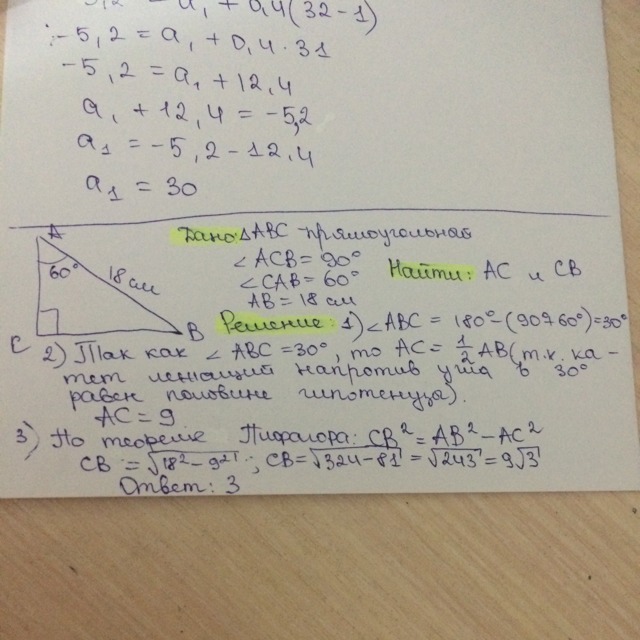 5,2 = a₁ + 0,4(32-1)
-5,2 = a₁ + 0,4·31
-5,2 = a₁ + 12,4
a₁ + 12,4 = -5,2
a₁ = -5,2-12,4
a₁ = 30
A
60°
18 см
B
C
Дано: ΔABC прямоугольная
∠ACB = 90°
∠CAB = 60°
AB = 18 см
Найти: AC и CB
Решение: 1) ∠ABC = 180°-(90+60°)=30°
2) Так как ∠ABC = 30°, то AC = 1/2 AB (т.к. ка-
тет лежащий напротив угла в 30°
равен половине гипотенуза).
AC = 9
3) По теореме Пифагора: CB² = AB² - AC²
CB = √18² - 9²; CB = √324-81 = √243 = 9√3
Ответ: 3